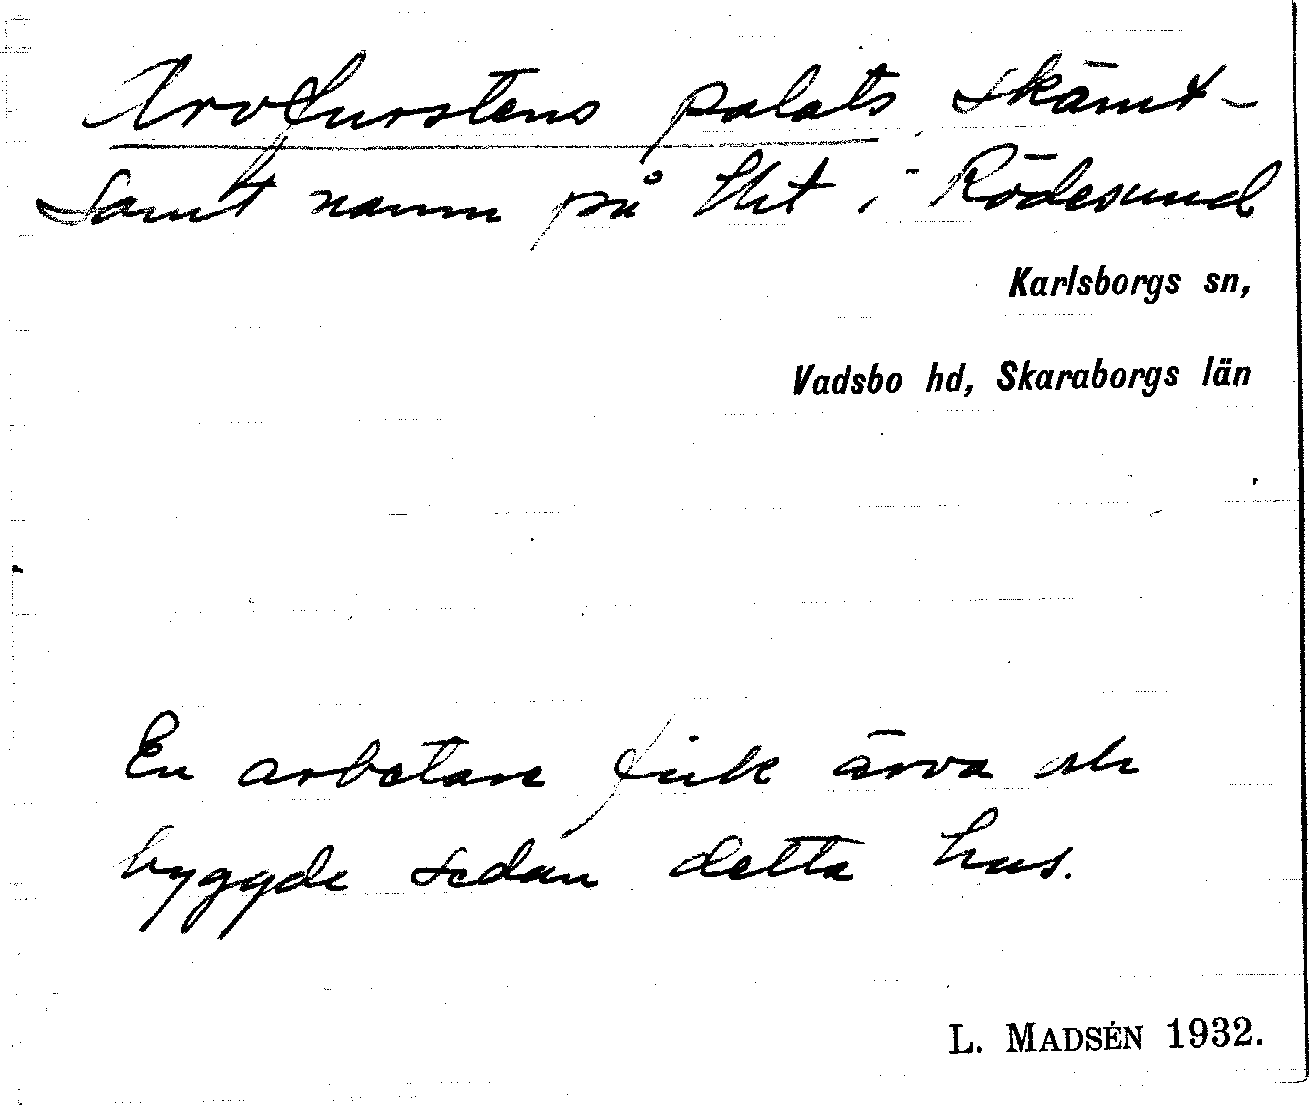 Arvfurstens palats skämt-
samt namn på tht i Rödesund
Karlsborgs sn,
Vadsbo hd, Skaraborgs län
En arbetare fick ärva och
byggde sedan detta hus.
L. MADSÉN 1932.